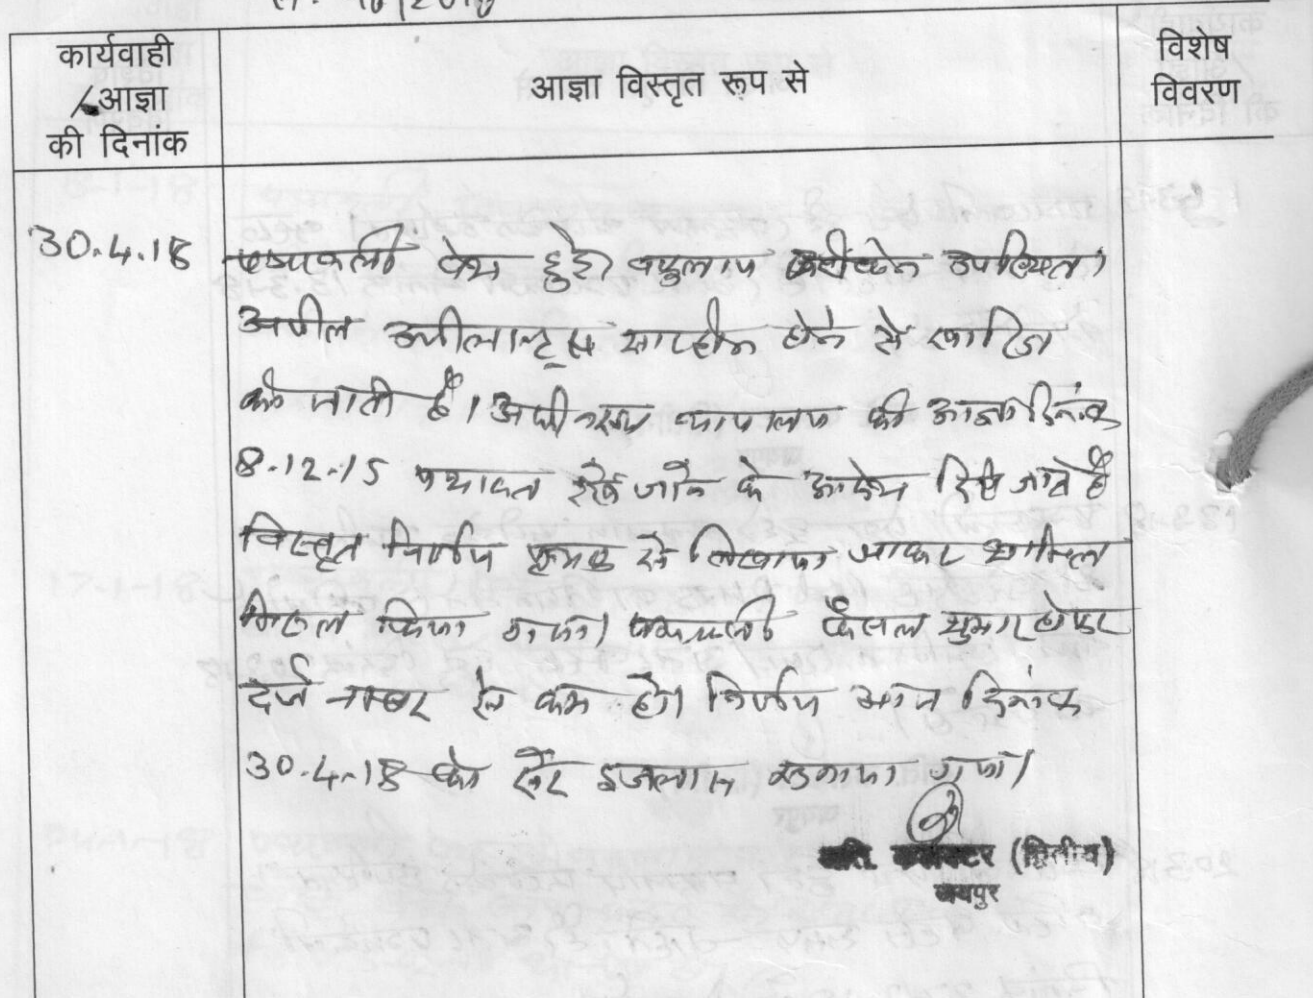 कार्यवाही
/ आज्ञा
की दिनांक
आज्ञा विस्तृत रूप से
विशेष
विवरण
30.4.18
पत्रावली पेश हुई। वकुलाय फरीकेन उपस्थित।
अपील अपीलान्ट्स सारहीन होने से खारिज
की जाती है। अधीनस्थ न्यायालय की आज्ञा दिनांक
8.12.15 यथावत रखे जाने के आदेश दिये जाते है
विस्तृत निर्णय पृथक से लिखाया जाकर शामिल
मिसल किया गया। पत्रावली फैसल शुमार होकर
दर्ज नम्बर से कम हो। निर्णय आज दिनांक
30.4.18 को सरे इजलास सुनाया गया।
अति. कलेक्टर (द्वितीय)
जयपुर